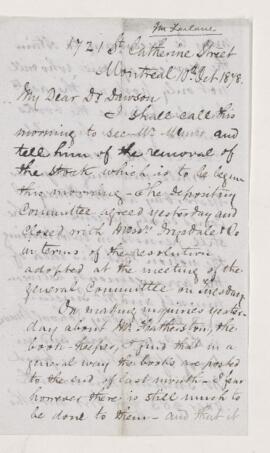 1721 St. Catherine Street
Montreal 10th Oct 1878.
My Dear Dr Dawson
I shall call this
morning to see Mr and
tell him of the removal of
the Stock, which is to be begun
this morning - The Depository
Committee agreed yesterday and
closed with Messrs. Drysdale & Co
in terms of the resolution
adopted at the meeting of the
general Committee on Tuesday
On making inquiries yester-
day about Mr. Featherston, the
book-keeper, I find that in a
general way the books are posted
to the end of last month - I fear
however there is still much to
be done to them - and that it